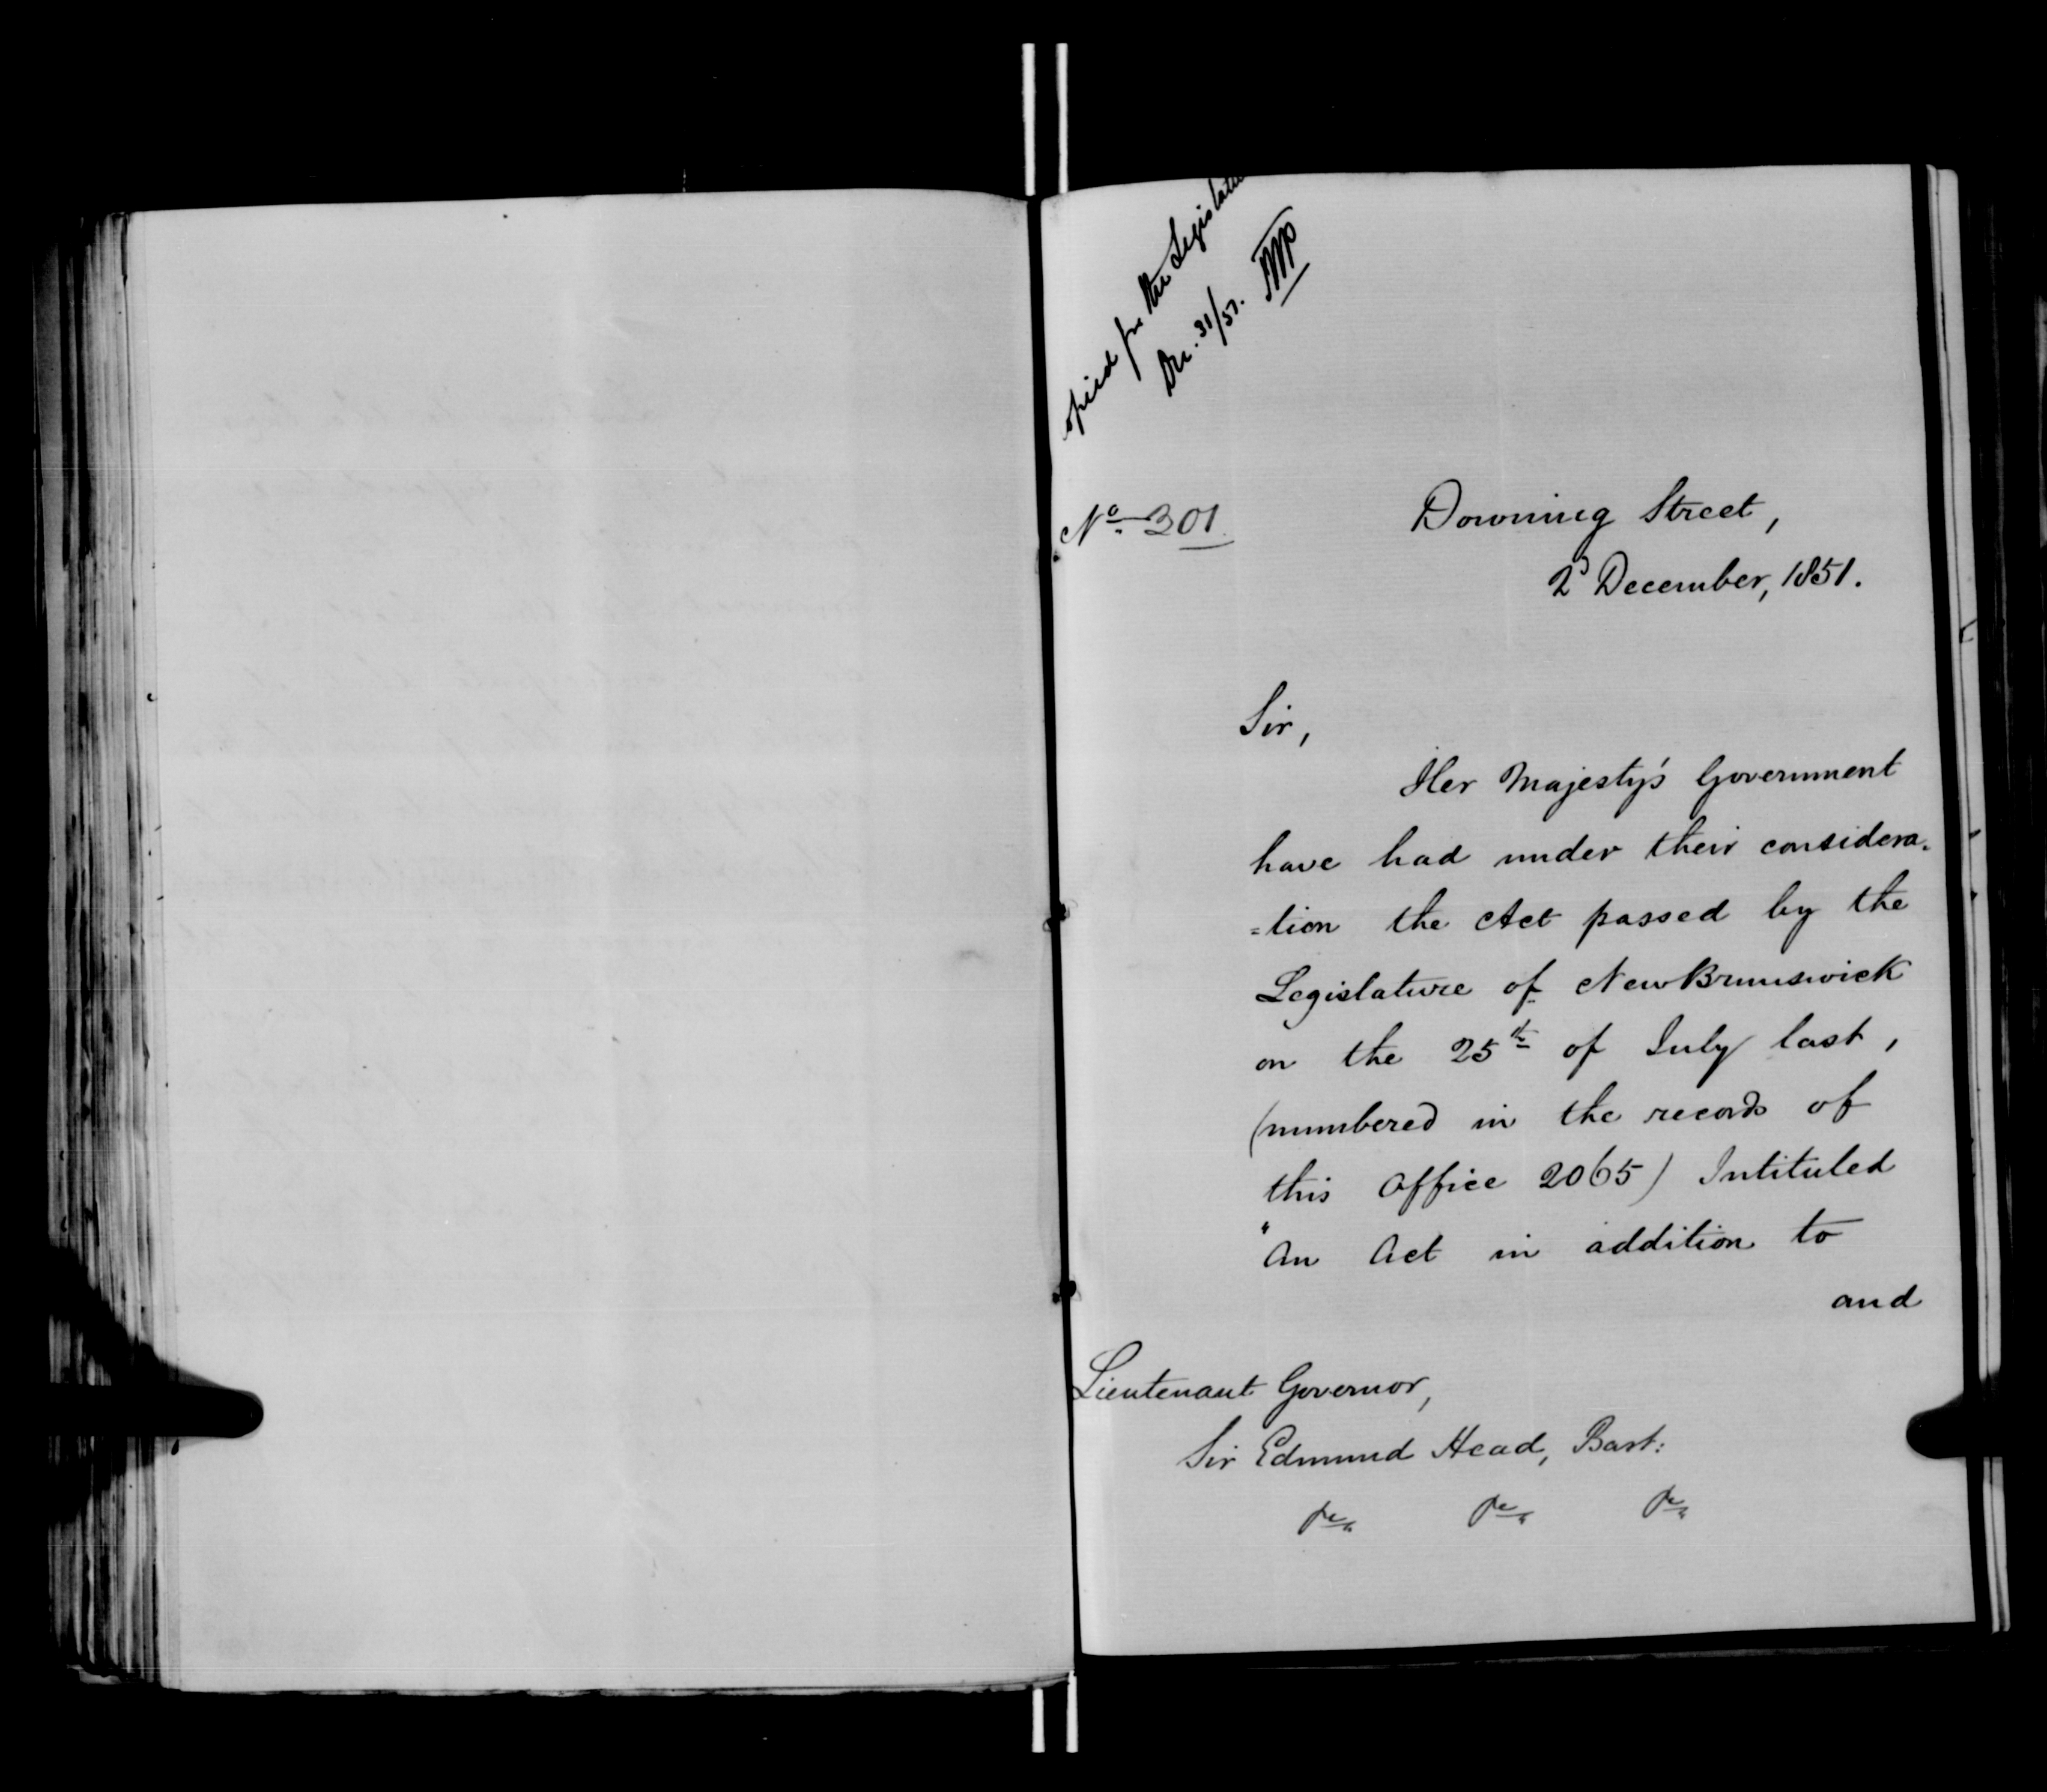 opied for the Legislatu
Dec. 31/51.
No. 301.
Downing Street,
2d December, 1851.
Sir,
Her Majesty's Government
have had under their considera-
=tion the Act passed by the
Legislature of New Brunswick
on the 25th of July last,
(numbered in the records of
this Office 2065) Intituled
"An Act in addition to
and
Lieutenant Governor,
Sir Edmund Head, Bart:
&c. &c. &c.